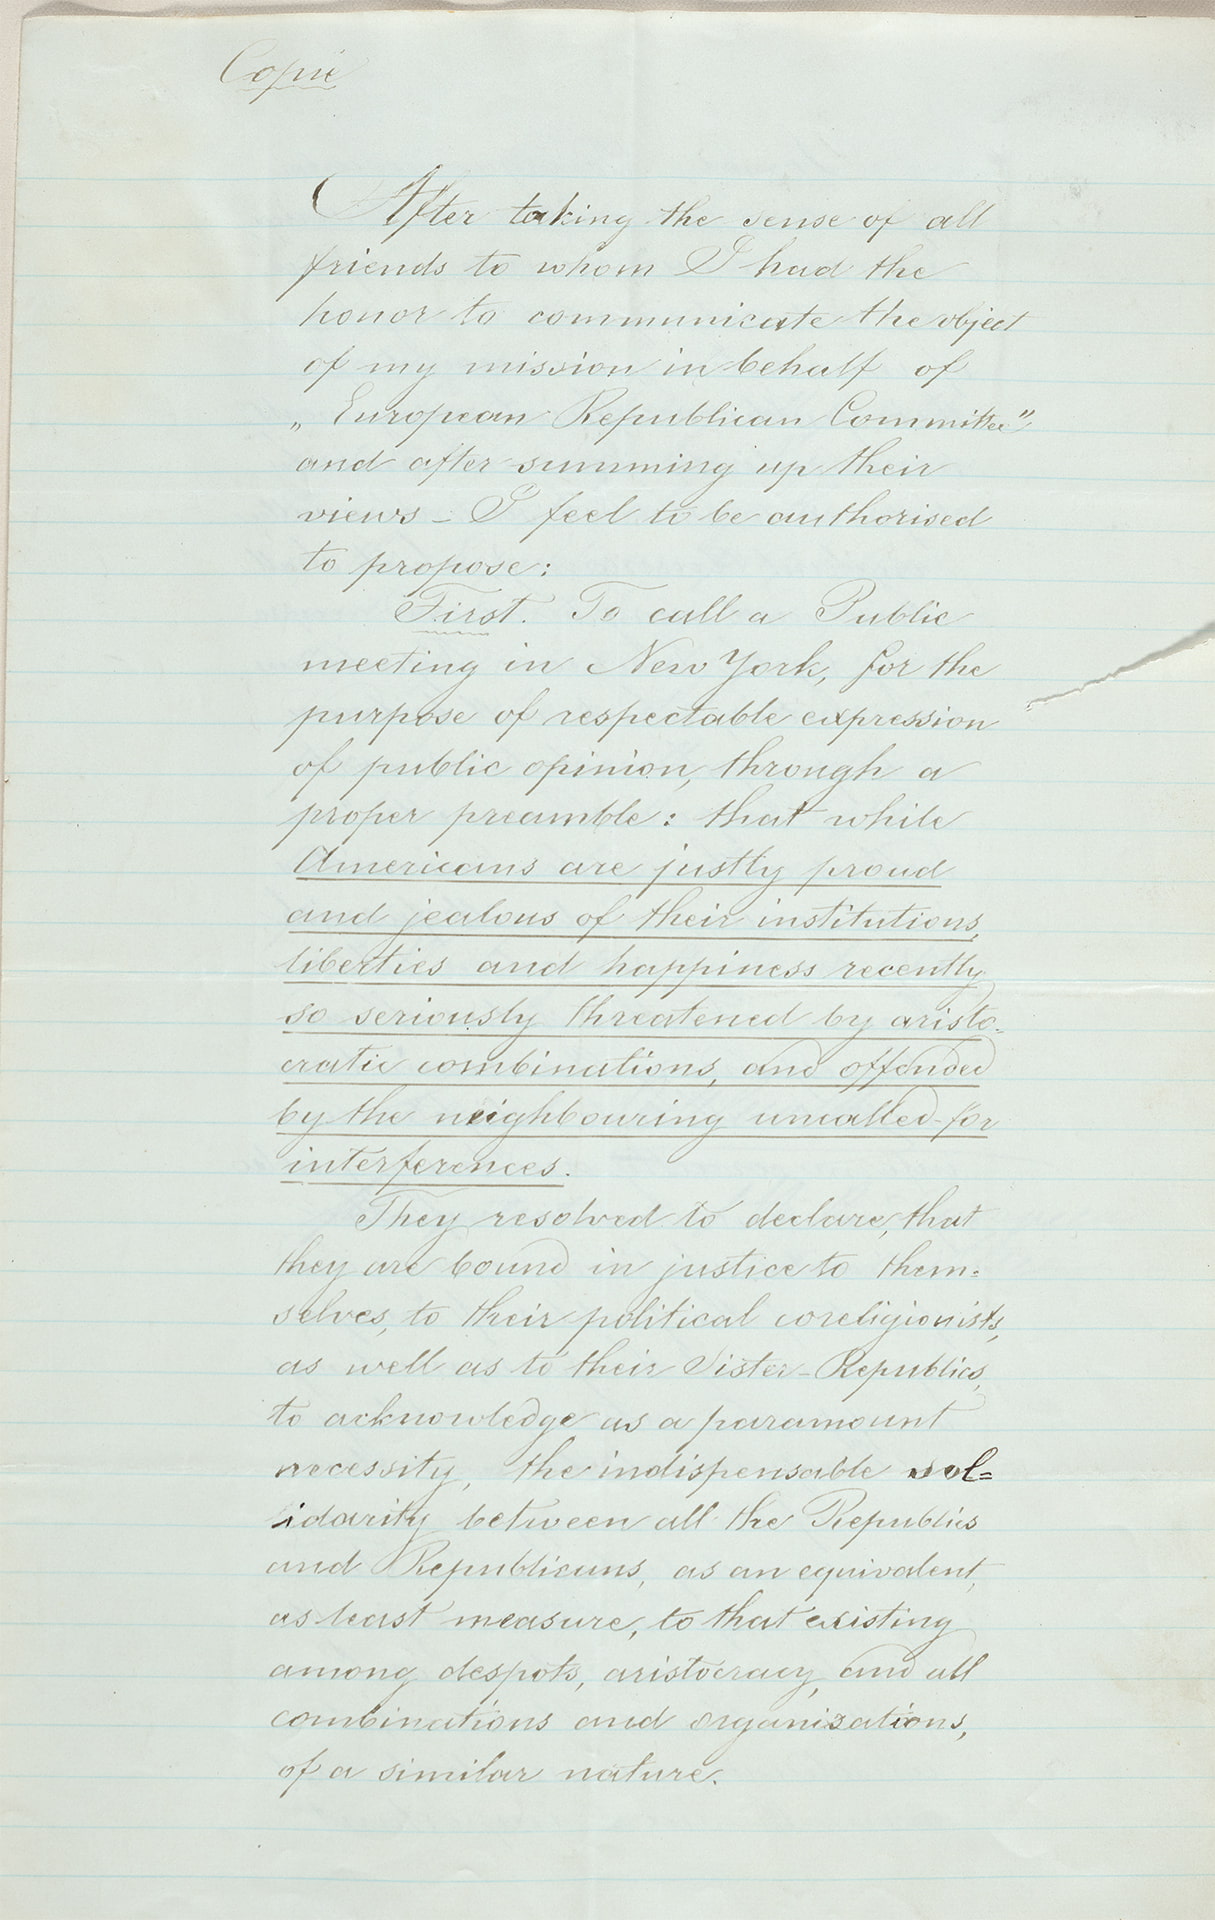 Copie
After taking the sense of all
friends to whom I had the
honor to communicate the object
of my mission in behalf of
„European Republican Committee"
and after summing up their
views – I feel to be authorised
to propose:
First. To call a Public
meeting in New York, for the
purpose of respectable expression
of public opinion, through a
proper preamble: that while
Americans are justly proud
and jealous of their institutions,
liberties and happiness recently
so seriously threatened by aristo-
cratic combinations, and offended
by the neighbouring uncalled-for
interferences.
They resolved to declare, that
they are bound in justice to them=
selves, to their political coreligionists,
as well as to their Sister-Republics,
to acknowledge as a paramount
necessity, the indispensable sol=
idarity between all the Republics
and Republicans, as an equivalent,
as least measure, to that existing
among despots, aristocracy, and all
combinations and organizations,
of a similar nature.